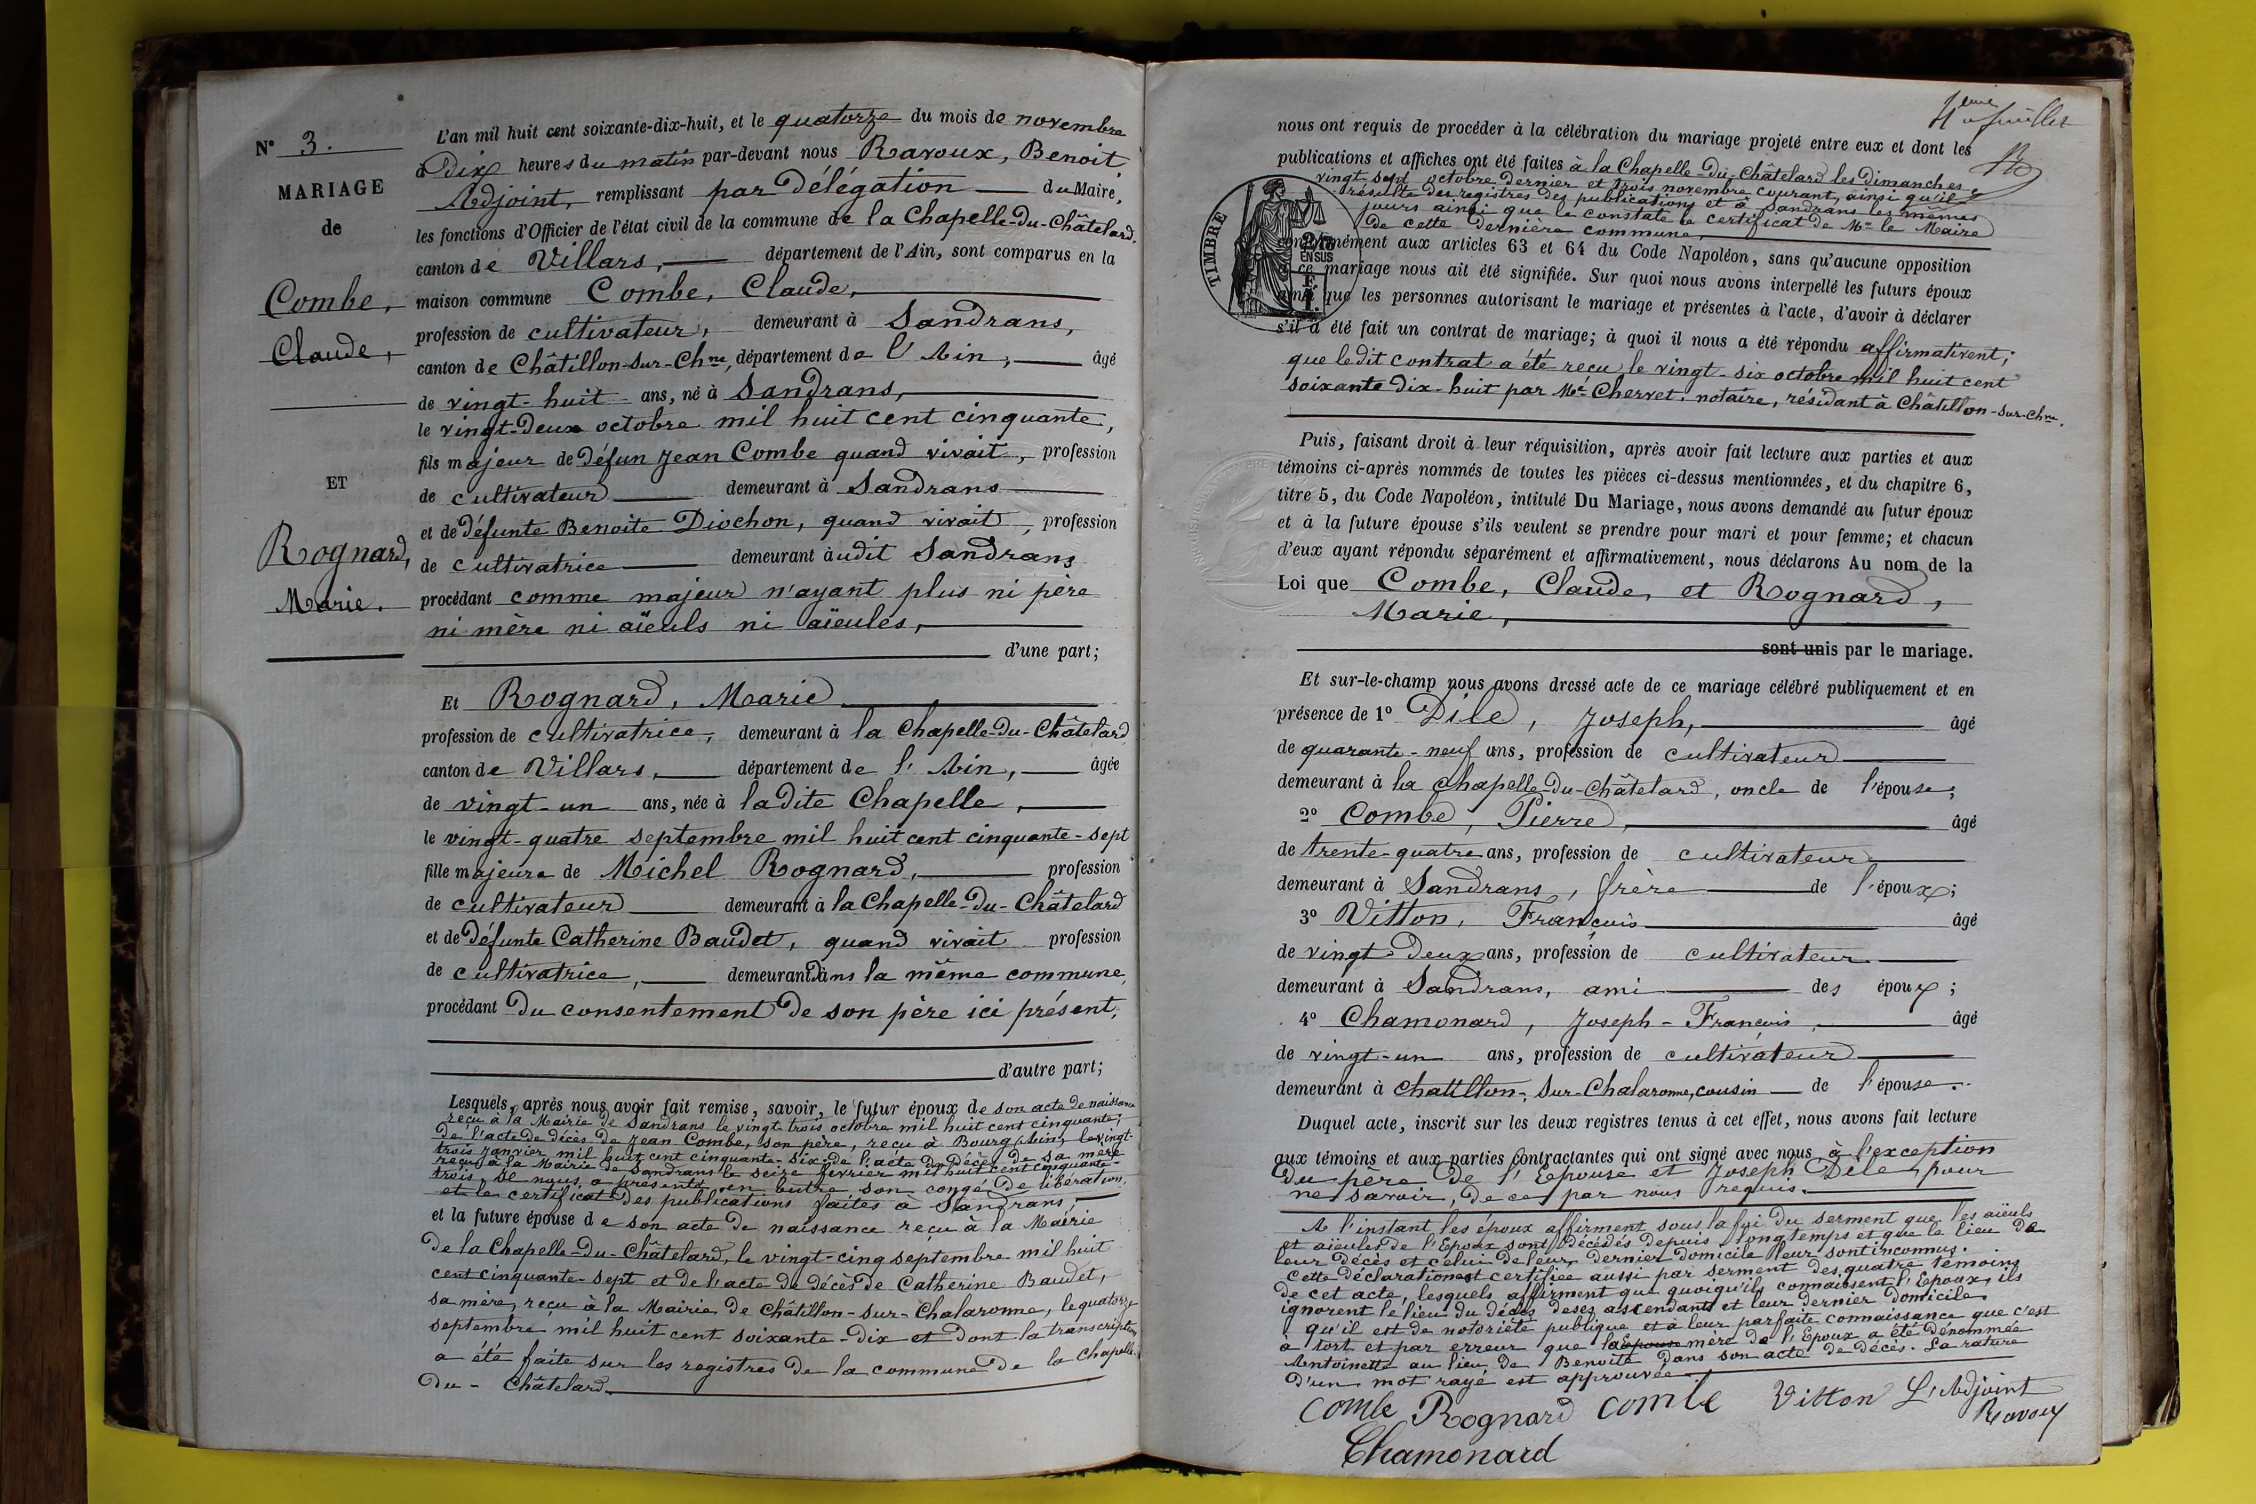 N° 3.
MARIAGE
de
Combe,
Claude,
ET
Rognard,
Marie.
L'an mil huit cent soixante-dix-huit, et le quatorze du mois de novembre
à Dix heures du matin par-devant nous Ravoux, Benoit,
Adjoint, remplissant par Délégation du Maire,
les fonctions d'Officier de l'état civil de la commune de la Chapelle-du-Châtelard,
canton de Villars, département de l'Ain, sont comparus en la
maison commune Combe, Claude,
profession de cultivateur, demeurant à Sandrans,
canton de Châtillon-sur-Chne, département de l'Ain, âgé
de vingt-huit ans, né à Sandrans,
le vingt-deux octobre mil huit cent cinquante,
fils majeur de défun Jean Combe quand vivait, profession
de cultivateur demeurant à Sandrans
et de défunte Benoite Diochon, quand vivait, profession
de cultivatrice demeurant àudit Sandrans
procédant comme majeur n'ayant plus ni père
ni mère ni aïeuls ni aïeules,
d'une part;
Et Rognard, Marie
profession de cultivatrice, demeurant à la Chapelle-du-Châtelard
canton de Villars, département de l'Ain, âgée
de vingt-un ans, née à ladite Chapelle,
le vingt-quatre septembre mil huit cent cinquante-sept
fille majeure de Michel Rognard, profession
de cultivateur demeurant à la Chapelle-du-Châtelard
et de Défunte Catherine Baudet, quand vivait profession
de cultivatrice, demeurant Dans la même commune,
procédant Du consentement De son père ici présent,
d'autre part;
Lesquels, après nous avoir fait remise, savoir, le futur époux de son acte de naissance
reçu à la Mairie de Sandrans le vingt trois octobre mil huit cent cinquante,
De l'acte de décès de Jean Combe, son père, reçu à Bourg (Ain) le vingt-
trois janvier mil huit cent cinquante-six; de l'acte du Décès De sa mère
reçu à la Mairie de Sandrans le seize février mil huit cent cinquante-
trois, De nous a présenté en outre son congé De libération,
et le certificat Des publications faites à Sandrans,
et la future épouse de son acte de naissance reçu à la Mairie
De la Chapelle-Du-Châtelard, le vingt-cinq septembre mil huit
cent cinquante-sept et de l'acte de décès de Catherine Baudet,
sa mère, reçu à la Mairie de Châtillon-sur-Chalaronne, le quatorze
septembre mil huit cent soixante-dix et dont la transcription
a été faite sur les registres de la commune De la Chapelle-
Du-Châtelard.
4eme feuillet
nous ont requis de procéder à la célébration du mariage projeté entre eux et dont les
publications et affiches ont été faites à la Chapelle-Du-Châtelard les Dimanches
vingt sept octobre dernier et trois novembre courant, ainsi qu'il
résulte des registres des publications et à Sandrans les mêmes
jours ainsi que le constate le certificat De Mr le Maire
De cette Dernière commune,
TIMBRE
2/10
EN SUS
conformément aux articles 63 et 64 du Code Napoléon, sans qu'aucune opposition
à ce mariage nous ait été signifiée. Sur quoi nous avons interpellé les futurs époux
ainsi que les personnes autorisant le mariage et présentes à l'acte, d'avoir à déclarer
s'il a été fait un contrat de mariage; à quoi il nous a été répondu affirmativent;
que le dit contrat a été reçu le vingt-six octobre mil huit cent
soixante-dix-huit par Me Chervet, notaire, résidant à Châtillon-sur-Chne.
Puis, faisant droit à leur réquisition, après avoir fait lecture aux parties et aux
témoins ci-après nommés de toutes les pièces ci-dessus mentionnées, et du chapitre 6,
titre 5, du Code Napoléon, intitulé Du Mariage, nous avons demandé au futur époux
et à la future épouse s'ils veulent se prendre pour mari et pour femme; et chacun
d'eux ayant répondu séparément et affirmativement, nous déclarons Au nom de la
Loi que Combe, Claude, et Rognard,
Marie,
sont unis par le mariage.
Et sur-le-champ nous avons dressé acte de ce mariage célébré publiquement et en
présence de 1° Dile, Joseph, âgé
de quarante-neuf ans, profession de cultivateur
demeurant à la Chapelle-Du-Châtelard, oncle de l'épouse;
2° Combe, Pierre, âgé
de trente-quatre ans, profession de cultivateur
demeurant à Sandrans, frère de l'époux;
3° Vitton, François âgé
de vingt-deux ans, profession de cultivateur
demeurant à Sandrans, ami des époux;
4° Chamonard, Joseph-François, âgé
de vingt-un ans, profession de cultivateur
demeurant à Chatillon-sur-Chalaronne, cousin de l'épouse.
Duquel acte, inscrit sur les deux registres tenus à cet effet, nous avons fait lecture
aux témoins et aux parties contractantes qui ont signé avec nous à l'exception
Du père De l'Epouse et Joseph Dile, pour
ne savoir, De ce par nous requis.
A l'instant les époux affirment sous la foi Du serment que les aïeuls
et aïeules de l'Epoux sont Décédés Depuis longtemps et que le lieu De
leur Décès et celui De leur Dernier domicile leur sont inconnus.
Cette Déclaration est certifiée aussi par serment Des quatre témoins
De cet acte, lesquels affirment que quoiqu'ils connaissent l'Epoux, ils
ignorent le lieu Du Décès De ses ascendants et leur Dernier Domicile
qu'il est De notoriété publique et à leur parfaite connaissance que c'est
à tort et par erreur que la épouse mère De l'Epoux a été Dénommée
Antoinette au lieu De Benoite Dans son acte De Décès. La rature
D'un mot rayé est approuvée
Combe Rognard Combe Vitton L'Adjoint
Ravoux
Chamonard